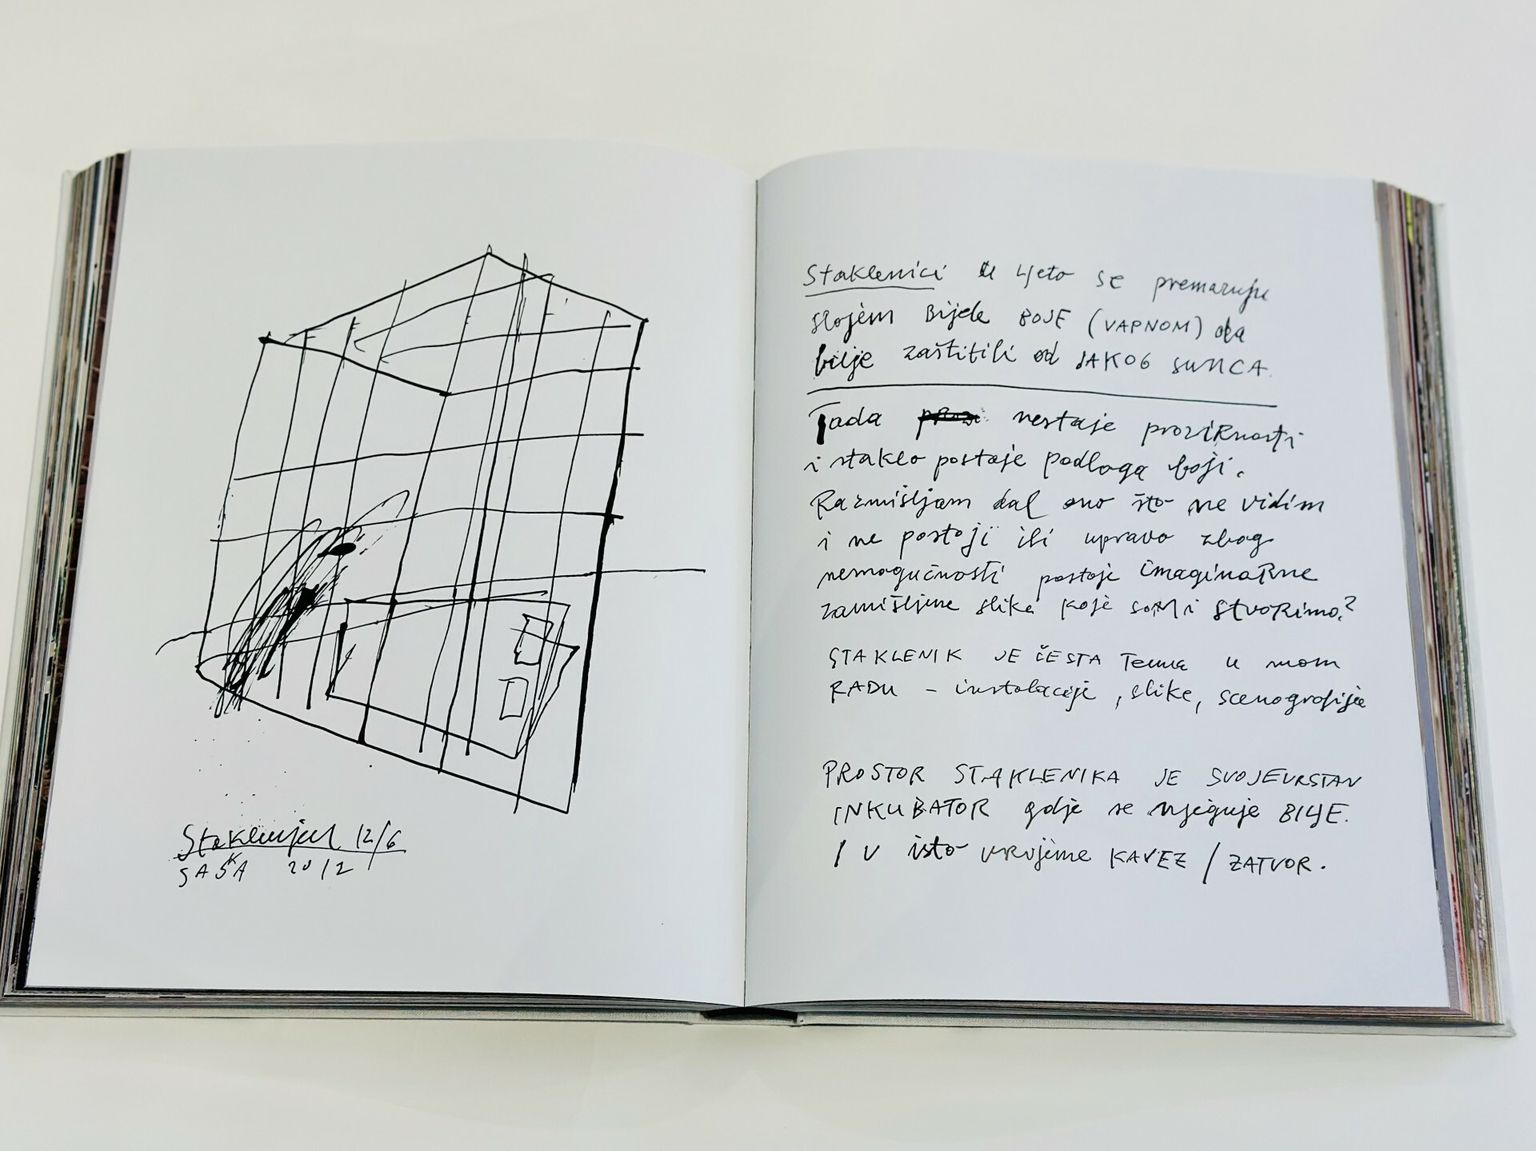 12/6
SAŠA 2012
Staklenici u ljeto se premazuju
slojem Bijele BOJE (VAPNOM) da
bilje zaštitili od JAKOG SUNCA.
Tada nestaje prozirnosti
i staklo postaje podloga boji.
Razmišljam dal ono što ne vidim
i ne postoji ili upravo zbog
nemogućnosti postoje imaginarne
zamišljene slike koje sami stvorimo?
STAKLENIK JE ČESTA Tema u mom
RADU - instalacije, slike, scenografije
PROSTOR STAKLENIKA JE SVOJEVRSTAN
INKUBATOR gdje se njeguje BILJE.
I U isto vrijeme KAVEZ / ZATVOR.